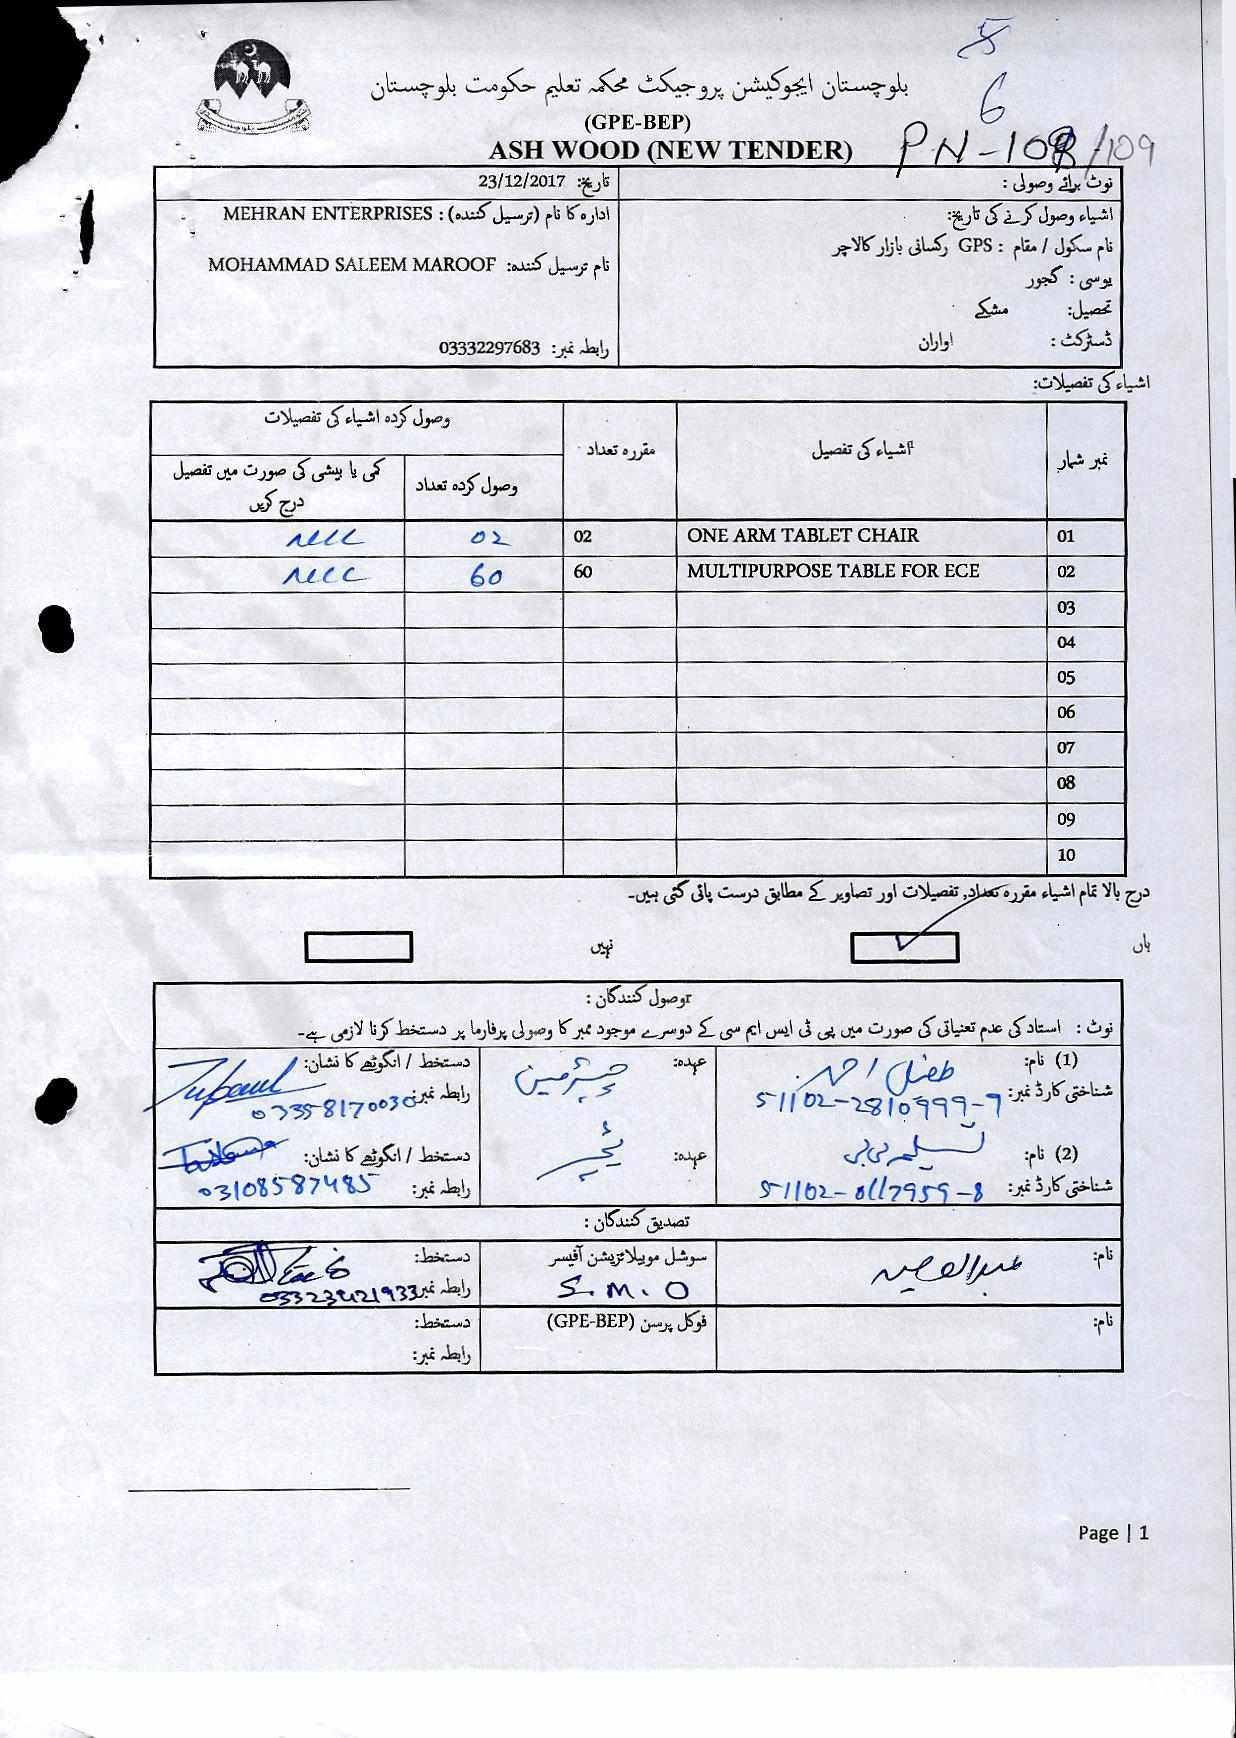 5
6
بلوچستان ایجوکیشن پروجیکٹ محکمہ تعلیم حکومت بلوچستان
(GPE-BEP)
ASH WOOD (NEW TENDER)
PN-108/109
نوٹ برائے وصولی :
تاریخ: 23/12/2017
اشیاء وصول کرنے کی تاریخ:
نام سکول / مقام : GPS رکسانی بازار کالاچر
یوسی : گجور
تحصیل: مشکے
ڈسٹرکٹ : اواران
ادارہ کا نام (ترسیل کنندہ) : MEHRAN ENTERPRISES
نام ترسیل کنندہ: MOHAMMAD SALEEM MAROOF
رابطہ نمبر: 03332297683
اشیاء کی تفصیلات:
نمبر شمار اشیاء کی تفصیل مقررہ تعداد وصول کردہ اشیاء کی تفصیلات
وصول کردہ تعداد کمی یا بیشی کی صورت میں تفصیل درج کریں
01 ONE ARM TABLET CHAIR 02 02
02 MULTIPURPOSE TABLE FOR ECE 60 60
03
04
05
06
07
08
09
10
درج بالا تمام اشیاء مقررہ تعداد, تفصیلات اور تصاویر کے مطابق درست پائی گئی ہیں۔
ہاں نہیں
وصول کنندگان :
نوٹ : استاد کی عدم تعنیاتی کی صورت میں پی ٹی ایس ایم سی کے دوسرے موجود ممبر کا وصولی پرفارما پر دستخط کرنا لازمی ہے۔
(1) نام: طفیل احمد عہدہ: چیئرمین دستخط / انگوٹھے کا نشان:
شناختی کارڈ نمبر: 51102-2810999-7 رابطہ نمبر: 03358170030
(2) نام: تسلیم بی بی عہدہ: ٹیچر دستخط / انگوٹھے کا نشان:
شناختی کارڈ نمبر: 51102-0117959-8 رابطہ نمبر: 03108587485
تصدیق کنندگان :
نام: سوشل موبیلائزیشن آفیسر دستخط:
S.M.O رابطہ نمبر: 03323421933
نام: فوکل پرسن (GPE-BEP) دستخط:
رابطہ نمبر:
Page | 1